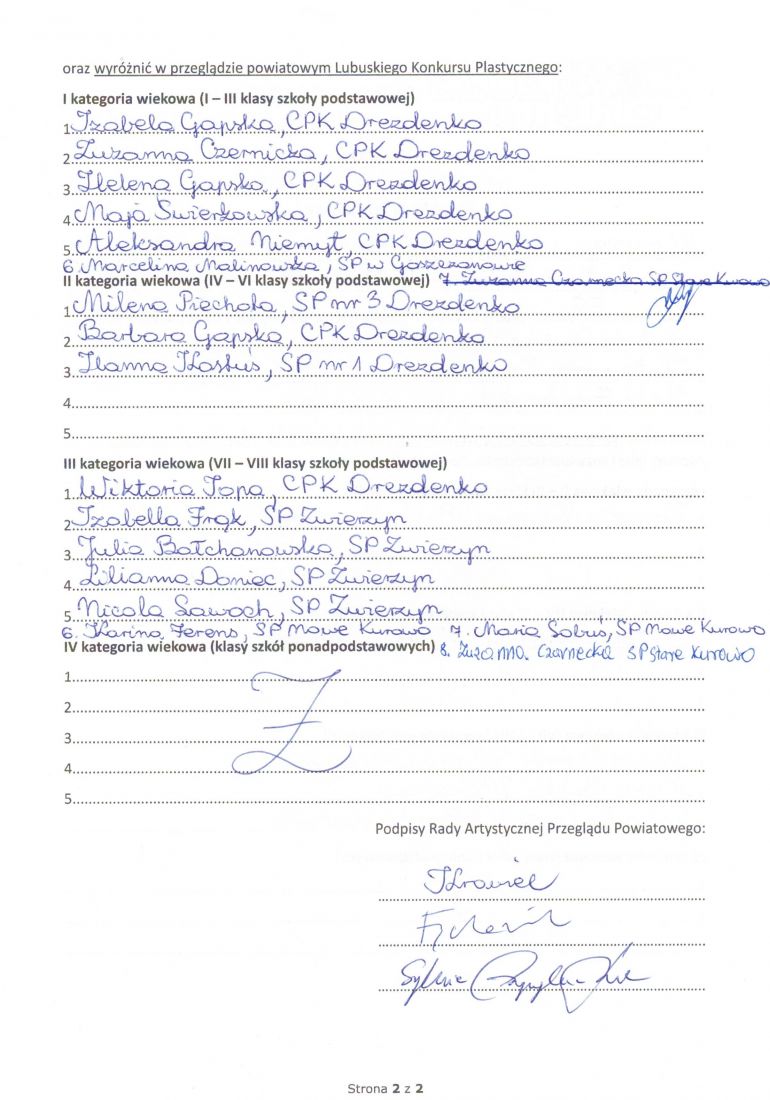 oraz wyróżnić w przeglądzie powiatowym Lubuskiego Konkursu Plastycznego:
I kategoria wiekowa (I – III klasy szkoły podstawowej)
1. Izabela Gapska, CPK Drezdenko
2. Zuzanna Czernicka, CPK Drezdenko
3. Helena Gapska, CPK Drezdenko
4. Maja Świerkowska, CPK Drezdenko
5. Aleksandra Niemyt, CPK Drezdenko
6. Marcelina Malinowska, SP w Goszczanowie
II kategoria wiekowa (IV – VI klasy szkoły podstawowej) 7. Zuzanna Czarnecka SP Stare Kurowo
1. Milena Piechota, SP nr 3 Drezdenko
2. Barbara Gapska, CPK Drezdenko
3. Hanna Kostuś, SP nr 1 Drezdenko
4.
5.
III kategoria wiekowa (VII – VIII klasy szkoły podstawowej)
1. Wiktoria Topa, CPK Drezdenko
2. Izabella Frąk, SP Zwierzyn
3. Julia Bałchanowska, SP Zwierzyn
4. Lilianna Doniec, SP Zwierzyn
5. Nicola Sawoch, SP Zwierzyn
6. Karina Ferens, SP Nowe Kurowo 7. Maria Sobuś, SP Nowe Kurowo
IV kategoria wiekowa (klasy szkół ponadpodstawowych) 8. Zuzanna Czarnecka SP Stare Kurowo
1.
2.
3.
4.
5.
Podpisy Rady Artystycznej Przeglądu Powiatowego:
Strona 2 z 2